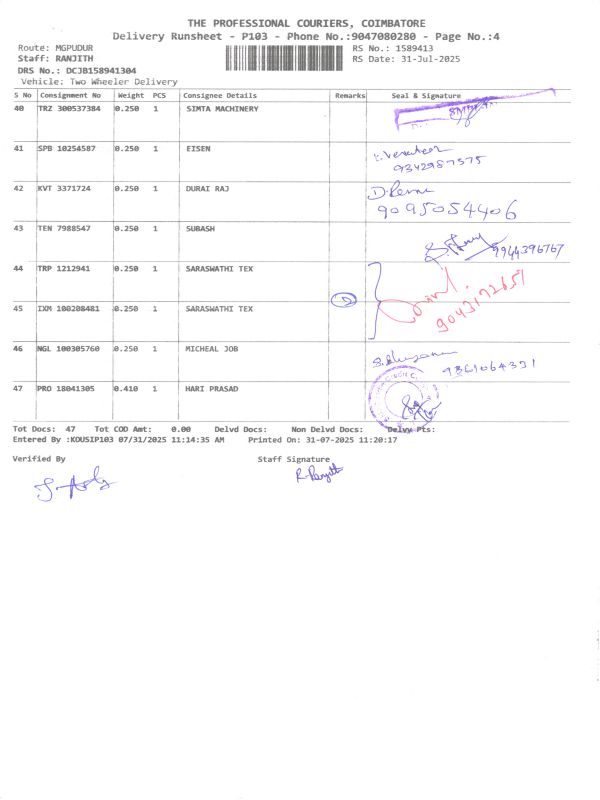 THE PROFESSIONAL COURIERS, COIMBATORE
Delivery Runsheet - P103 - Phone No.:9047080280 - Page No.:4
Route: MGPUDUR RS No.: 1589413
Staff: RANJITH RS Date: 31-Jul-2025
DRS No.: DCJB158941304
Vehicle: Two Wheeler Delivery
S No Consignment No Weight PCS Consignee Details Remarks Seal & Signature
40 TRZ 300537384 0.250 1 SIMTA MACHINERY
41 SPB 10254587 0.250 1 EISEN
9342987575
42 KVT 3371724 0.250 1 DURAI RAJ
9095054406
43 TEN 7988547 0.250 1 SUBASH
9944396767
44 TRP 1212941 0.250 1 SARASWATHI TEX
45 IXM 100208481 0.250 1 SARASWATHI TEX 2
9043172651
46 NGL 100305760 0.250 1 MICHEAL JOB
9361064331
47 PRO 18041305 0.410 1 HARI PRASAD
Tot Docs: 47 Tot COD Amt: 0.00 Delvd Docs: Non Delvd Docs: Delvy Pts:
Entered By :KOUSIP103 07/31/2025 11:14:35 AM Printed On: 31-07-2025 11:20:17
Verified By Staff Signature